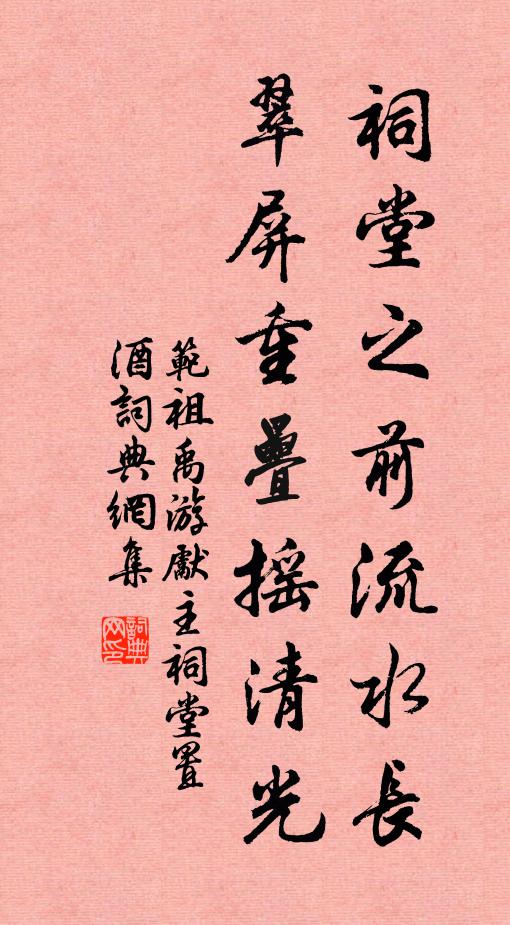 祠堂之前流水長
翠屏重疊搖清光
範祖禹游獻主祠堂置
酒詞典網集
詞典网印